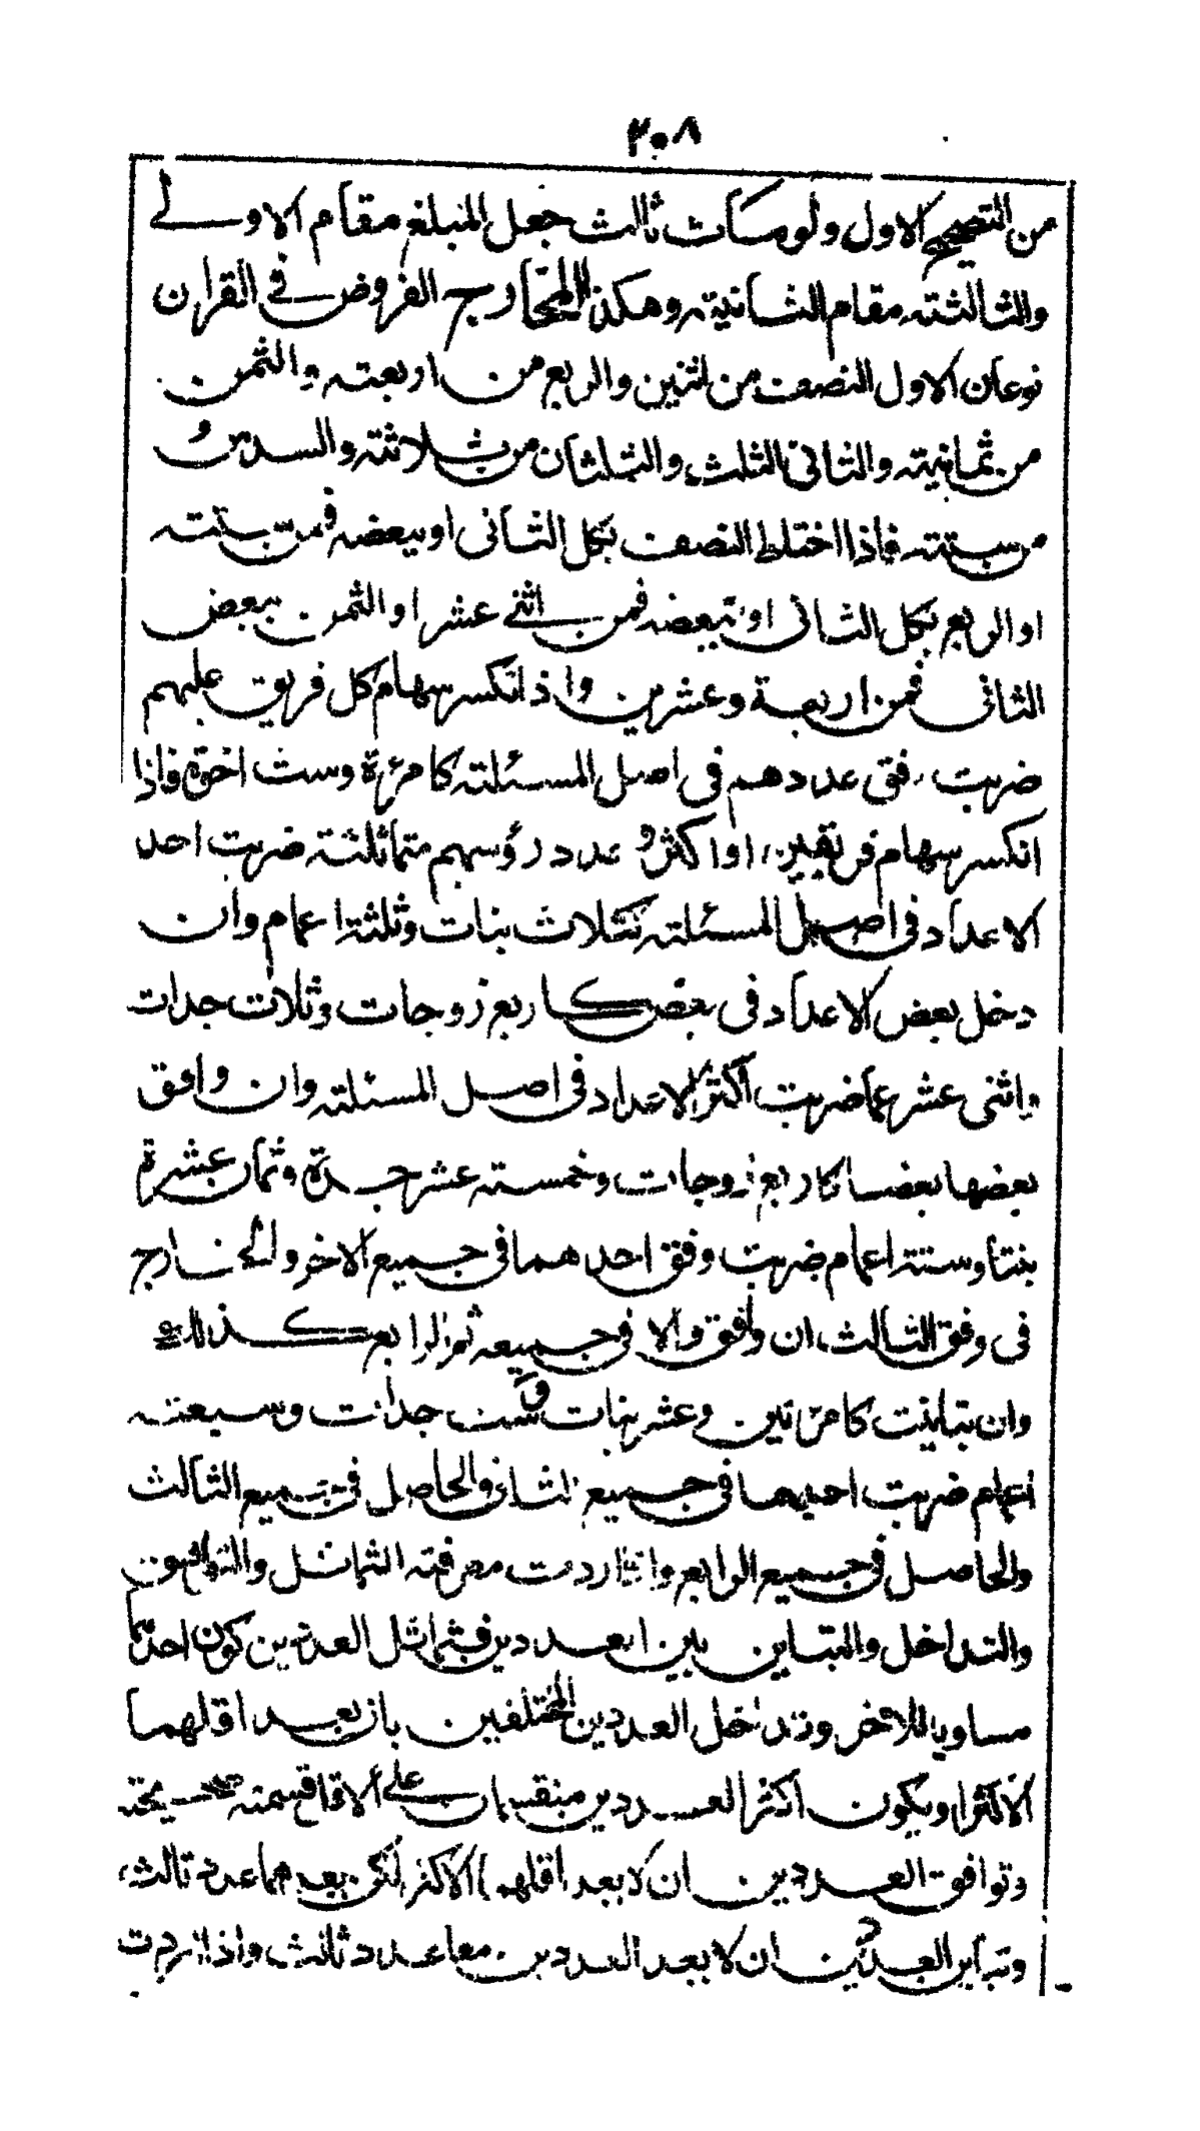 ٢٠٨
من التصحيح الاول ولو مات ثالث جعل المبلغ مقام الاولے
والثالثته مقام الثانيته وهكذا المخارج الفروض فے القران
نوعان الاول النصف من اثنين والربع من اربعته والثمن
من ثمانيته والثانى الثلث والثلثان من ثلاثته والسدس
من ستته فاذا اختلط النصف بكل الثانى او ببعضه فمن ستته
او الربع بكل الثانى او ببعضه فمن اثنے عشر او الثمن ببعض
الثانى فمن اربعة وعشرين واذ انكسر سهام كل فريق عليهم
ضربت وفق عددهم فى اصل المسئلته كامرءة وست اخوة فاذا
انكسر سهام فريقين او اكثر و عدد رؤسهم متماثلثة ضربت احد
الاعداد فى اصل المسئلته كثلاث بنات وثلثة اعمام وان
دخل بعض الاعداد فى بعض كاربع زوجات وثلاث جدات
واثنى عشر عما ضربت اكثر الاعداد فى اصل المسئلته وان وافق
بعضها بعضا كاربع زوجات وخمسته عشر جدة وثمان عشرة
بنتا وستة اعمام ضربت وفق احدهما فى جميع الاخر والخارج
فى وفق الثالث ان وافق والا فى جميعه ثم الرابع كذلك
وان تباينت كامرءتين وعشر بنات وست جدات وسبعته
اعمام ضربت احديهما فى جميع الثانى والحاصل فى جميع الثالث
والحاصل فى جميع الرابع واذا اردت معرفته التماثل والتوافق
والتداخل والتباين بين العددين فتماثل العددين كون احدهما
مساويا للاخر وتداخل العددين المختلفين بان يعد اقلهما
الاكثر او يكون اكثر العددين منقسما على الاقل قسمته صحيحته
وتوافق العددين ان لا يعد اقلهما الاكثر لكن يعدهما عدد ثالث
وتباين العددين ان لا يعد العددين معا عدد ثالث واذا اردت